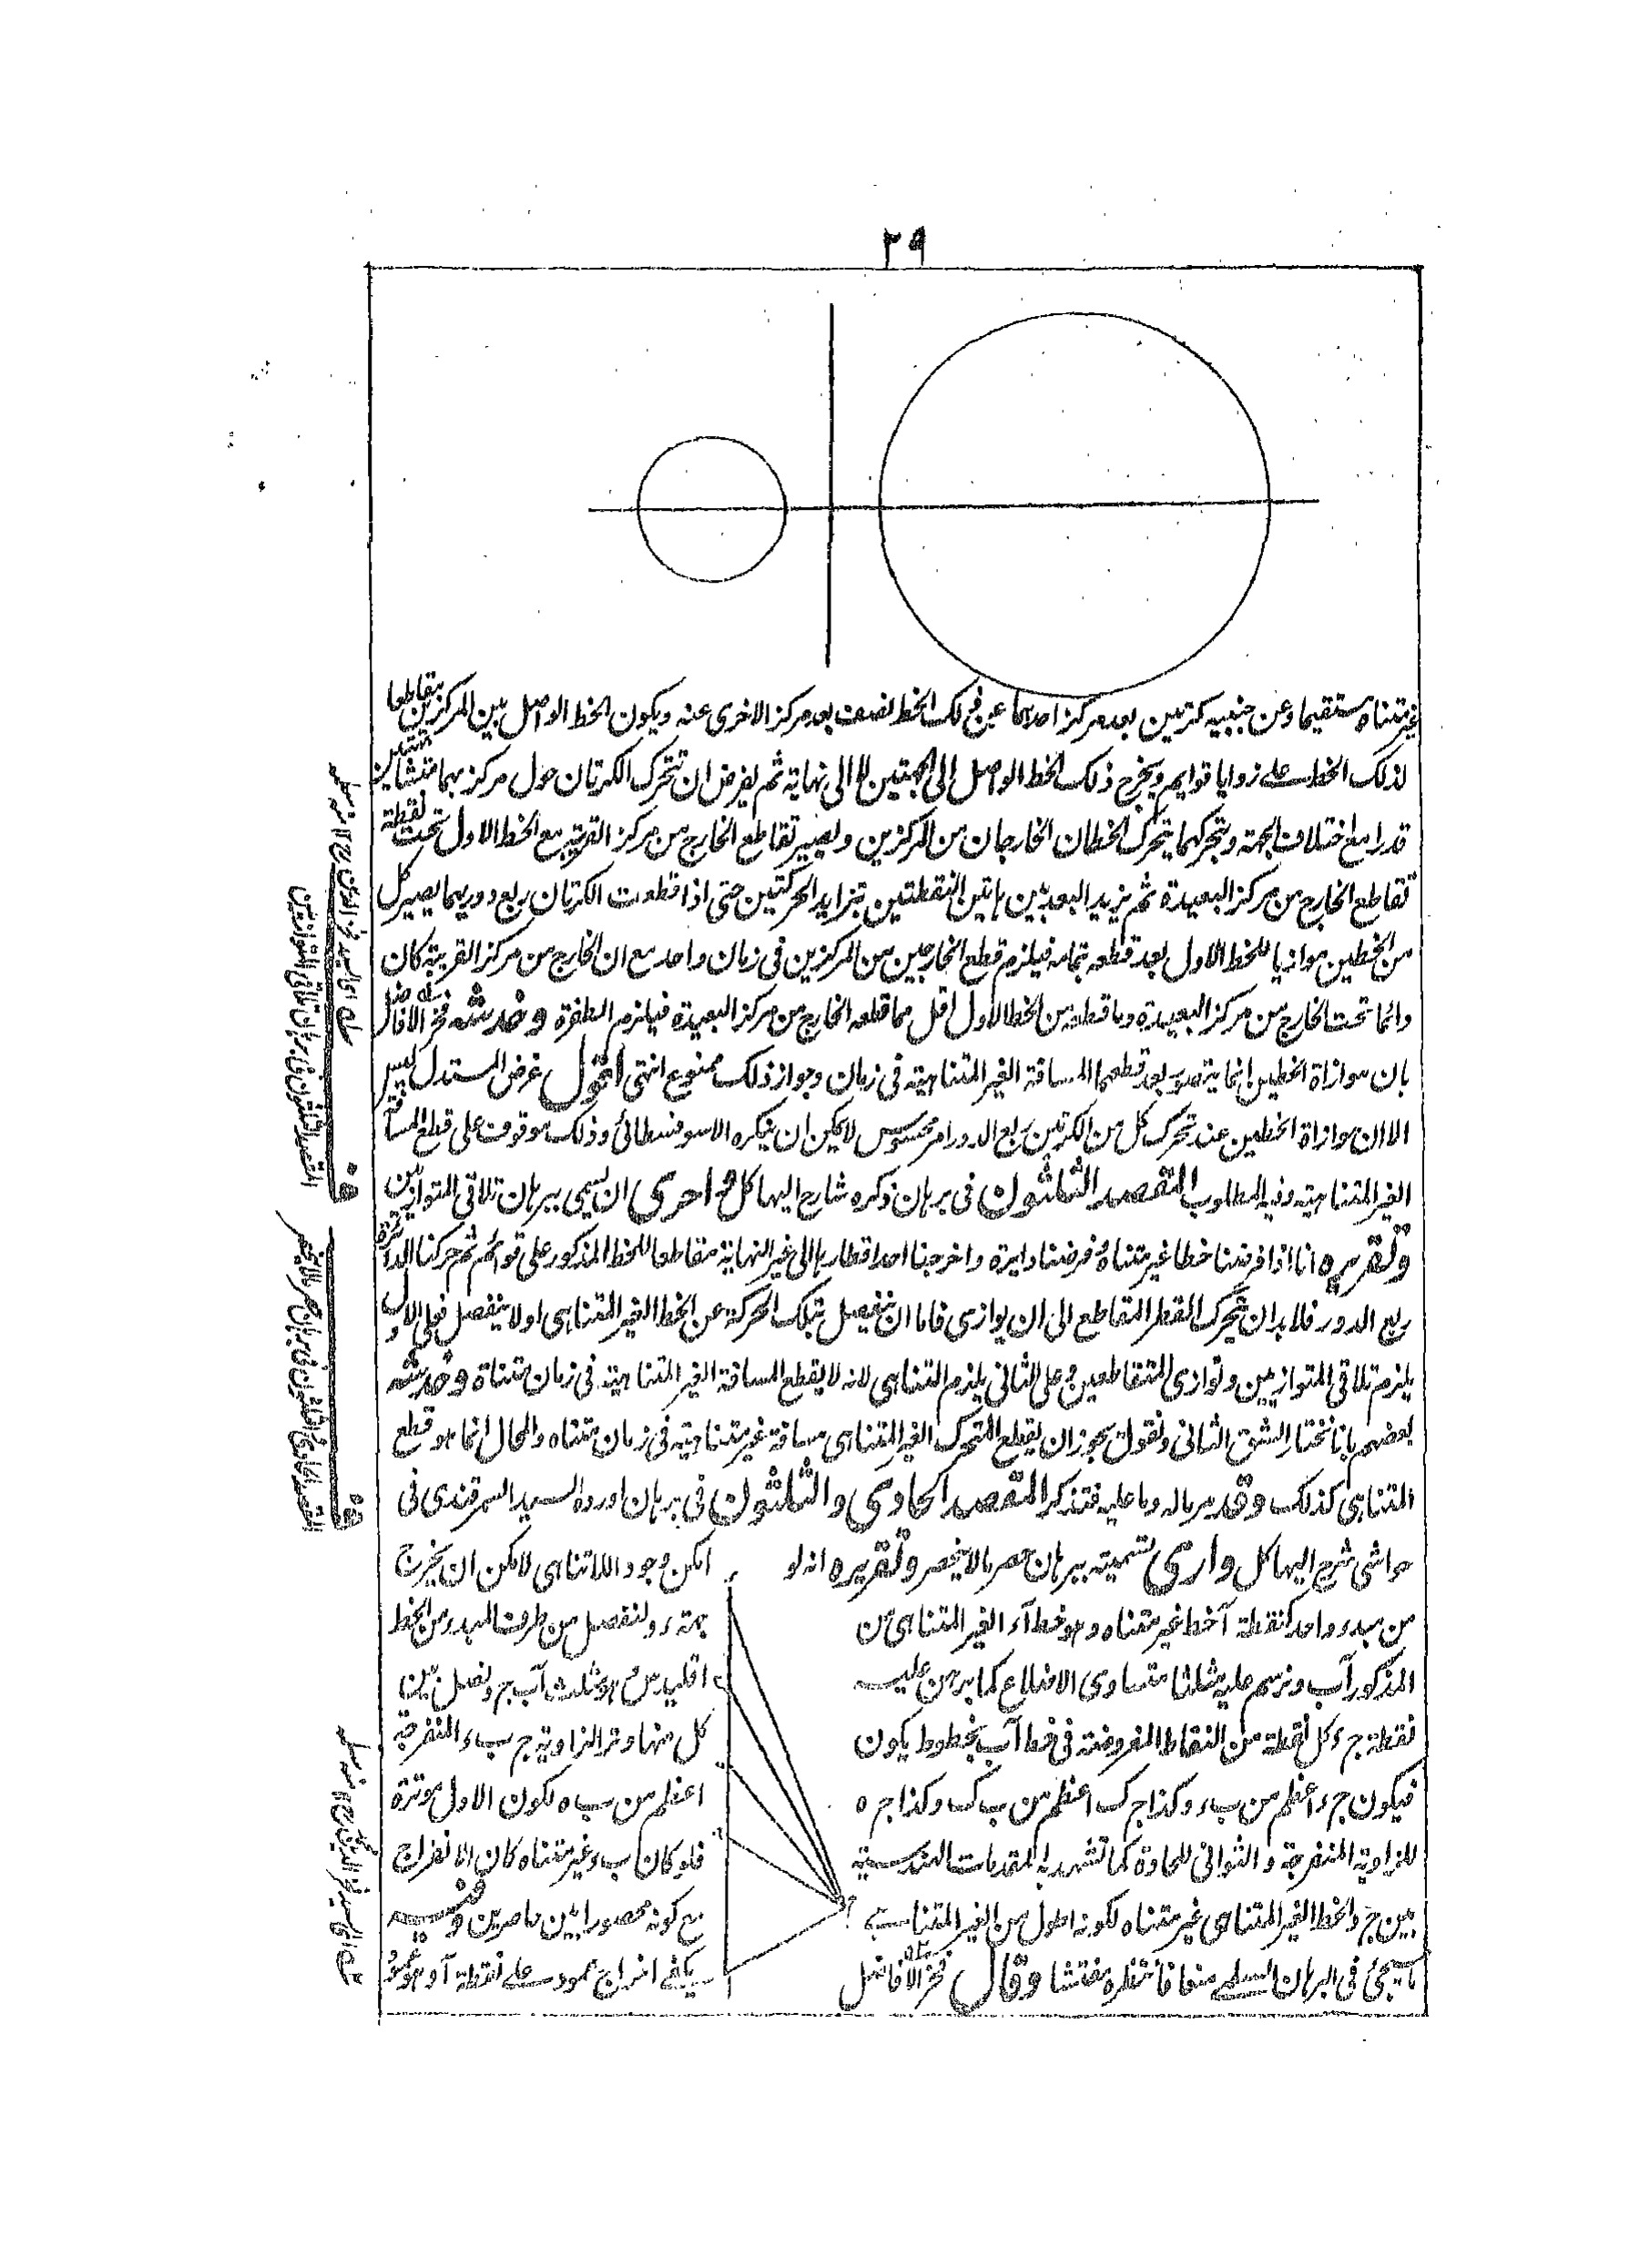 ٢٩
غير متناه مستقيما وعن جنبيه كرتين بعد مركز احداهما عن ذلك الخط نصف بعد مركز الاخرى عنه ويكون الخط الواصل بين المركزين مقاطعا
لذلك الخط على زوايا قوايم ويخرج ذلك الخط الواصل الى الجهتين لا الى نهاية ثم يفرض ان تتحرك الكرتان حول مركزيهما
قدرا مع اختلاف الجهة وبتحركهما يتحرك الخطان الخارجان من المركزين ويصير تقاطع الخارج من مركز القريبة مع الخط الاول تحت نقطة
تقاطع الخارج من مركز البعيدة ثم يزيد البعد بين هاتين النقطتين بتزايد الحركتين حتى اذا قطعت الكرتان ربع دوريهما يصير كل
من الخطين موازيا للخط الاول بعد قطعه بتمامه فيلزم قطع الخارجين من المركزين فى زمان واحد مع ان الخارج من مركز القريبة كان
دائما تحت الخارج من مركز البعيدة وما قطعه من الخط الاول اقل مما قطعه الخارج من مركز البعيدة فيلزم الطفرة وخدشه فخر الافاضل
بان موازاة الخطين انما يتصور بعد قطعهما المسافة الغير المتناهية فى زمان وجواز ذلك ممنوع انتهى اقول غرض المستدل ليس
الا ان موازاة الخطين عند تحرك كل من الكرتين ربع الدور امر محسوس لا يمكن ان ينكره الا سوفسطائى وذلك موقوف على قطع المسافة
الغير المتناهية وفيه المطلوب المقصد الثلثون فى برهان ذكره شارح الهياكل احرى ان يسمى ببرهان تلاقى المتوازيين
وتقريره انا اذا فرضنا خطا غير متناه فرضنا دايرة واخرجنا احد اقطارها الى غير النهاية مقاطعا للخط المذكور على قوائم ثم حركنا الدائرة
ربع الدور فلابد ان يتحرك القطر المقاطع الى ان يوازى فاما ان ينفصل بتلك الحركة عن الخط الغير المتناهى اولا ينفصل فعلى الاول
يلزم تلاقى المتوازيين وتوازى المتقاطعين وعلى الثانى يلزم التناهى لانه لا يقطع المسافة الغير المتناهية فى زمان متناه وخدشه
بعضهم بانا نختار الشق الثانى ونقول يجوز ان يقطع المتحرك الغير المتناهى مسافة غير متناهية فى زمان متناه والمحال انما هو قطع
المتناهى كذلك وقد مر ماله وما عليه فتذكر المقصد الحادى والثلثون فى برهان اورده السيد السمرقندى فى
حواشى شرح الهياكل وارى تسميته ببرهان حصر مالا ينحصر وتقريره انه لو امكن وجود اللاتناهى لامكن ان يخرج
من مبدء واحد كنقطة آ خط غير متناه وهو خط آء الغير المتناهى من جهة ء ولنفصل من طرف المبدء من الخط
المذكور آب ونرسم عليه مثلثا متساوى الاضلاع كما برهن عليه اقليدس هو مثلث آب ج ونصل بين
نقطة ج وكل نقطة من النقاط المفروضة فى خط آب بخطوط يكون كل منها وتر الزاوية ج ب ء المنفرجة
فيكون ج ء اعظم من ب ء وكذا ج ك اعظم من ب ك وكذا ج ه اعظم من ب ه لكون الاول موترة
للزاوية المنفرجة والثوانى للحادة كما تشهد به المقدمات الهندسية فلو كان ب ء غير متناه كان الانفراج
بين ج والخط الغير المتناهى غير متناه لكونه اطول من الغير المتناهى مع كونه محصورا بين حاصرين وفيه
ما سيجئ فى البرهان السلمى منعا فانتظره مفتشا وقال فخر الافاضل يكفى اخراج عمود على نقطة آ وهو